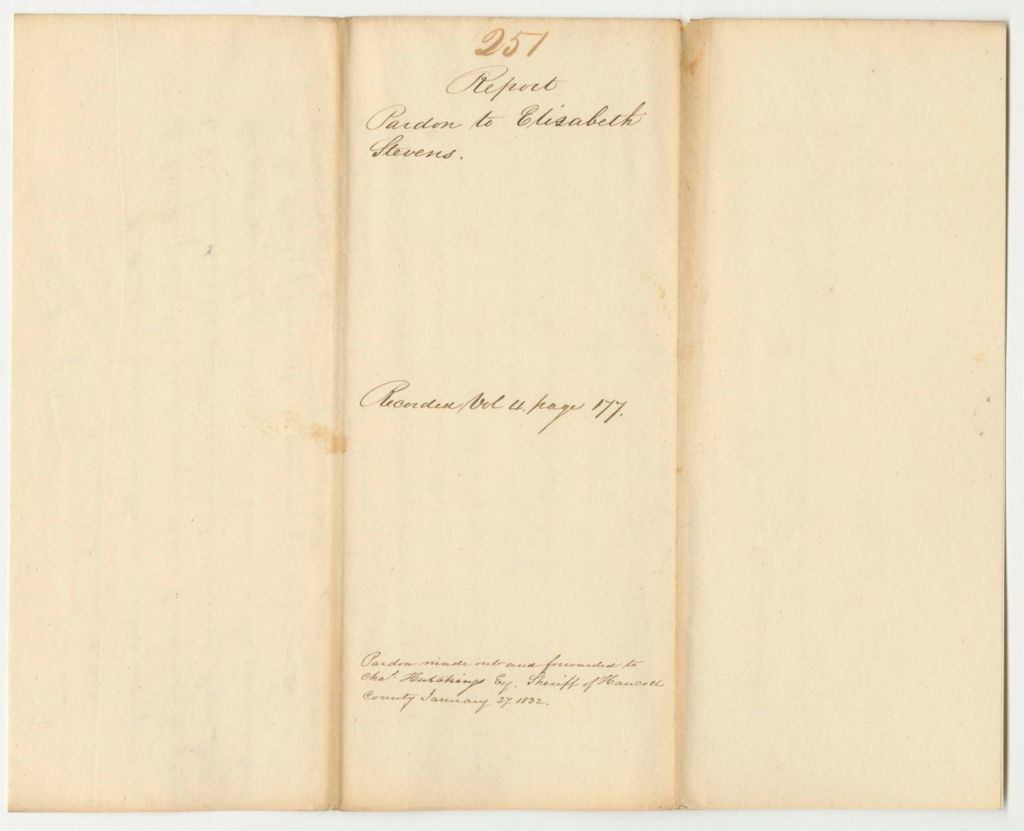 251
Report
Pardon to Elisabeth
Stevens.
Recorded Vol 4. page 177.
Pardon made out and forwarded to
Chas. Hutchings Esq. Sheriff of Hancock
County January 27. 1832.